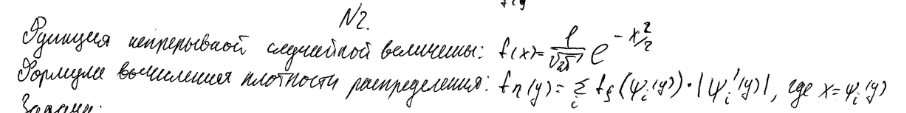 №2.
Функция непрерывной случайной величины: f(x) = 1/√2π e^(-x²/2)
Формула вычисления плотности распределения: f_η(y) = Σ_i f_ξ(ψ_i(y)) · |ψ_i'(y)|, где x = ψ_i(y)
Задачи: